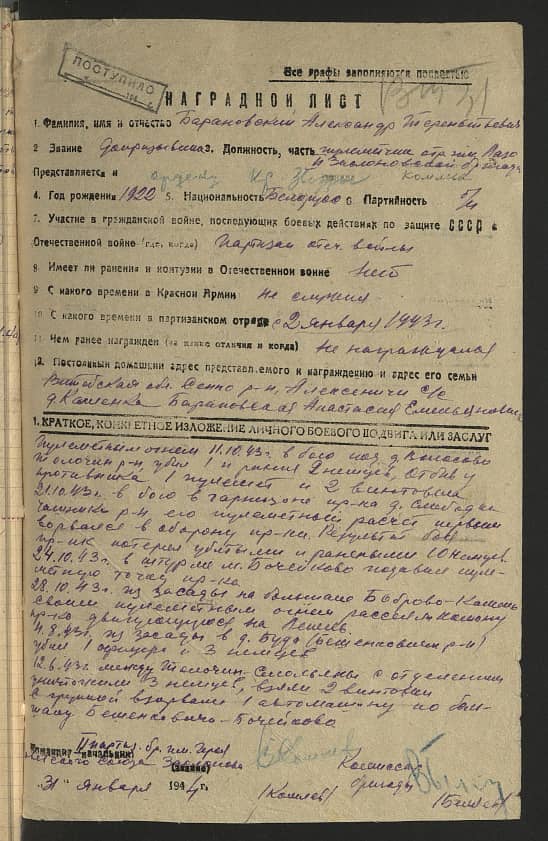 ПОСТУПИЛО
Все графы заполняются полностью
НАГРАДНОЙ ЛИСТ
1. Фамилия, имя и отчество Барановский Александр Терентьевич
2 Звание допризывник 3. Должность, часть пулеметчик отр. им. Лазо
II Заслоновской бригады
Представляется к ордену Кр. Звезды
4. Год рождения 1922 5. Национальность Белорус 6 Партийность б/п
7. Участие в гражданской войне, последующих боевых действиях по защите СССР и
Отечественной войне (где, когда) Партизан отеч. войны
8 Имеет ли ранения и контузии в Отечественной войне нет
9 С какого времени в Красной Армии не служил
10 С какого времени в партизанском отряде с 2 января 1943 г.
11 Чем ранее награжден (за какие отличия и когда) Не награждался
12. Постоянный домашний адрес представляемого к награждению и адрес его семьи
Витебская обл. Сенно р-н, Алексеничи с/с
д. Кашенка Барановская Анастасия Емельяновна
1. КРАТКОЕ, КОНКРЕТНОЕ ИЗЛОЖЕНИЕ ЛИЧНОГО БОЕВОГО ПОДВИГА ИЛИ ЗАСЛУГ
Пулеметным огнем 11.10.43 г. в бою под д.
Толочин р-н, убил 1 и ранил 2 немцев. Отбив у
противника 1 пулемет и 2 винтовки
21.10.43 г. в бою в гарнизоне пр-ка д. Слобода
Чашники р-н его пулеметный расчет первым
ворвался в оборону пр-ка. Результат боя
пр-ик потерял убитыми и ранеными 10 немцев.
24.10.43 г. в штурме м. Бочейково подавил пуле-
метную точку пр-ка
28.10.43 г. из засады на большаке Боброво-Камень
своим пулеметным огнем рассеял колонну
пр-ка двигающуюся на Лепель.
4.8.43 г. из засады в д. Буда (Бешенковичи р-н)
убил 1 офицера и 3 немцев
12.6.43 г. между Толочин-Смольяны с отделением
уничтожили 3 немцев, взяли 2 винтовки
С группой взорвали 1 автомашину по боль-
шаку Бешенковичи-Бочейково
Командир (начальник) II парт. бр. им. Героя
Советского Союза Заслонова
(звание)
Комиссар
бригады
"31" января 1944 г.